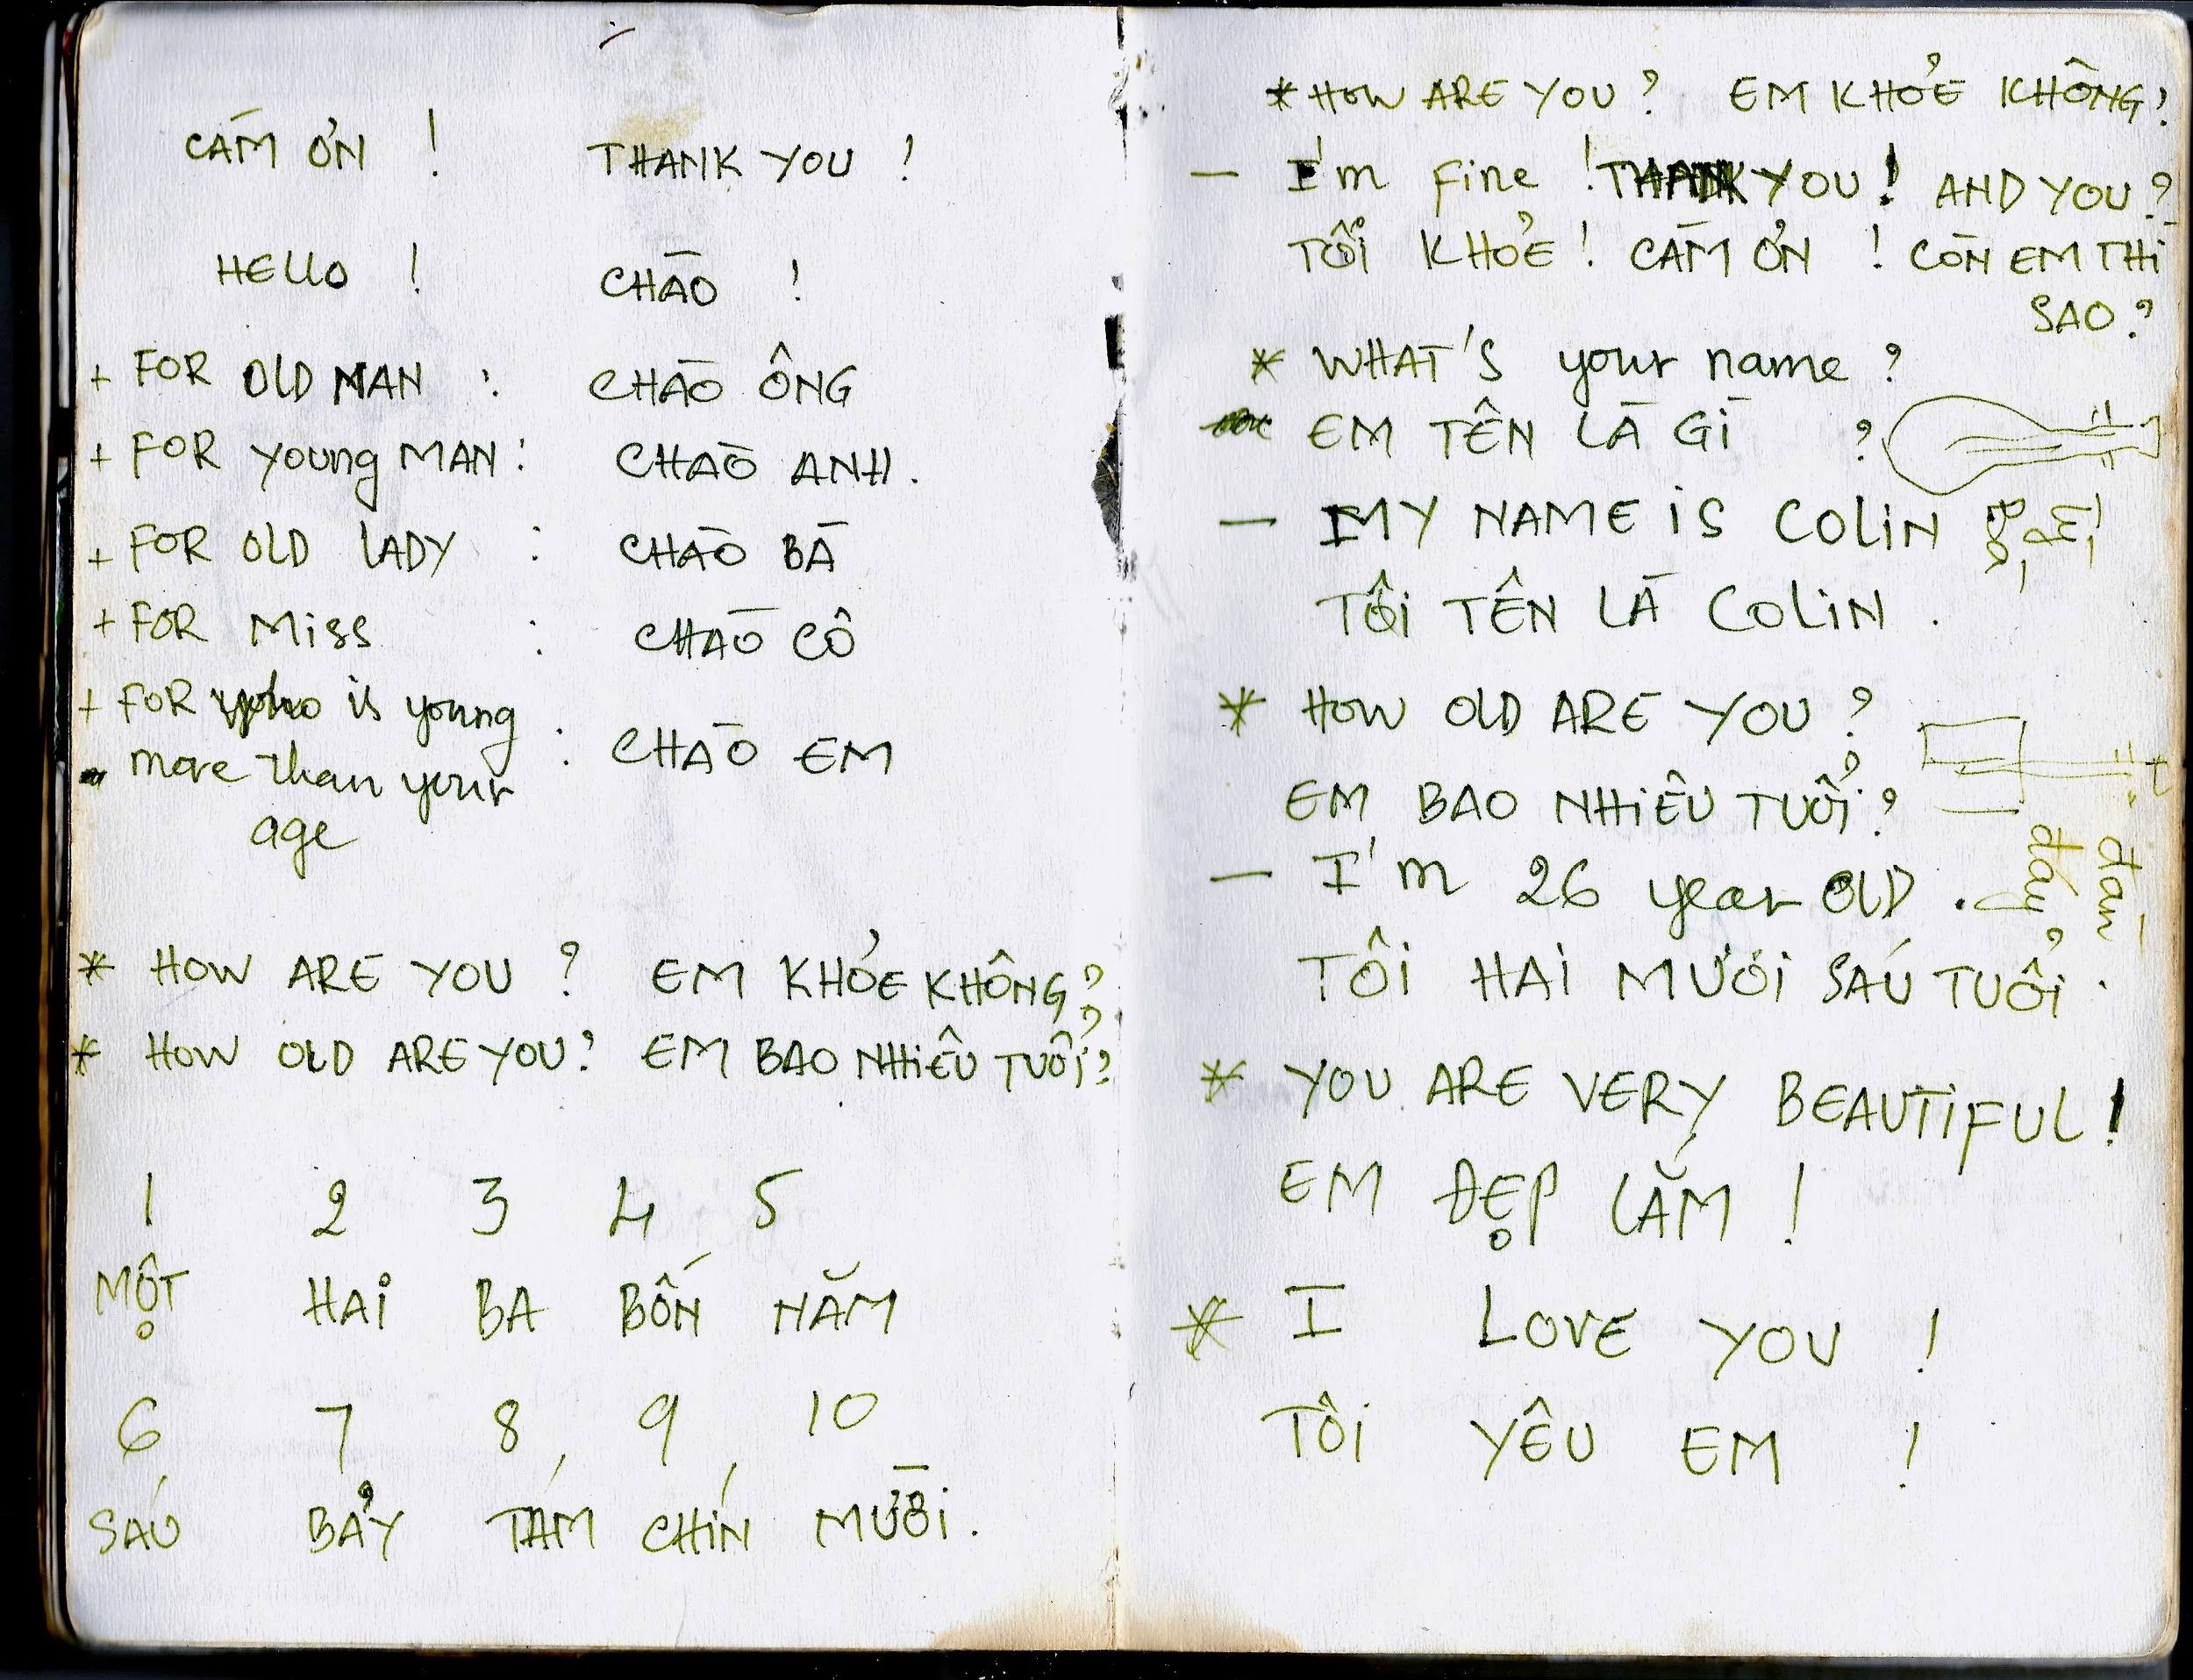 CÁM ƠN ! THANK YOU !
HELLO ! CHÀO !
+ FOR OLD MAN : CHÀO ÔNG
+ FOR young MAN : CHÀO ANH.
+ FOR OLD LADY : CHÀO BÀ
+ FOR Miss : CHÀO CÔ
+ FOR who is young
more than your : CHÀO EM
age
* HOW ARE YOU ? EM KHỎE KHÔNG?
* HOW OLD ARE YOU? EM BAO NHIÊU TUỔI?
1 2 3 4 5
MỘT HAI BA BỐN NĂM
6 7 8 9 10
SÁU BẢY TÁM CHÍN MƯỜI.
* HOW ARE YOU ? EM KHỎE KHÔNG?
— I'm fine ! THANK YOU ! AND YOU ?
TÔI KHỎE ! CÁM ƠN ! CÒN EM THÌ
SAO ?
* WHAT'S your name ?
EM TÊN LÀ GÌ ?
— MY NAME iS COLIN
TÔI TÊN LÀ COLIN .
* HOW OLD ARE YOU ?
EM BAO NHIÊU TUỔI ?
— I'm 26 year OLD .
TÔI HAI MƯƠI SÁU TUỔI .
* YOU ARE VERY BEAUTIFUL !
EM ĐẸP LẮM !
* I LOVE YOU !
TÔI YÊU EM !
đàn
đáy